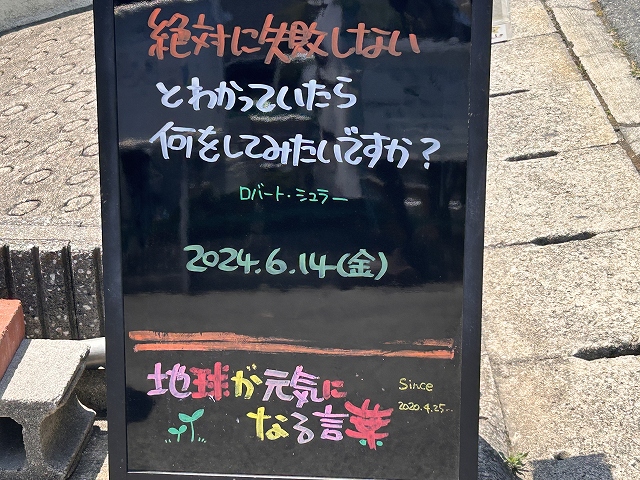 絶対に失敗しない
とわかっていたら
何をしてみたいですか?
ロバート・シュラー
2024.6.14(金)
地球が元気に
なる言葉
Since
2020.4.25...